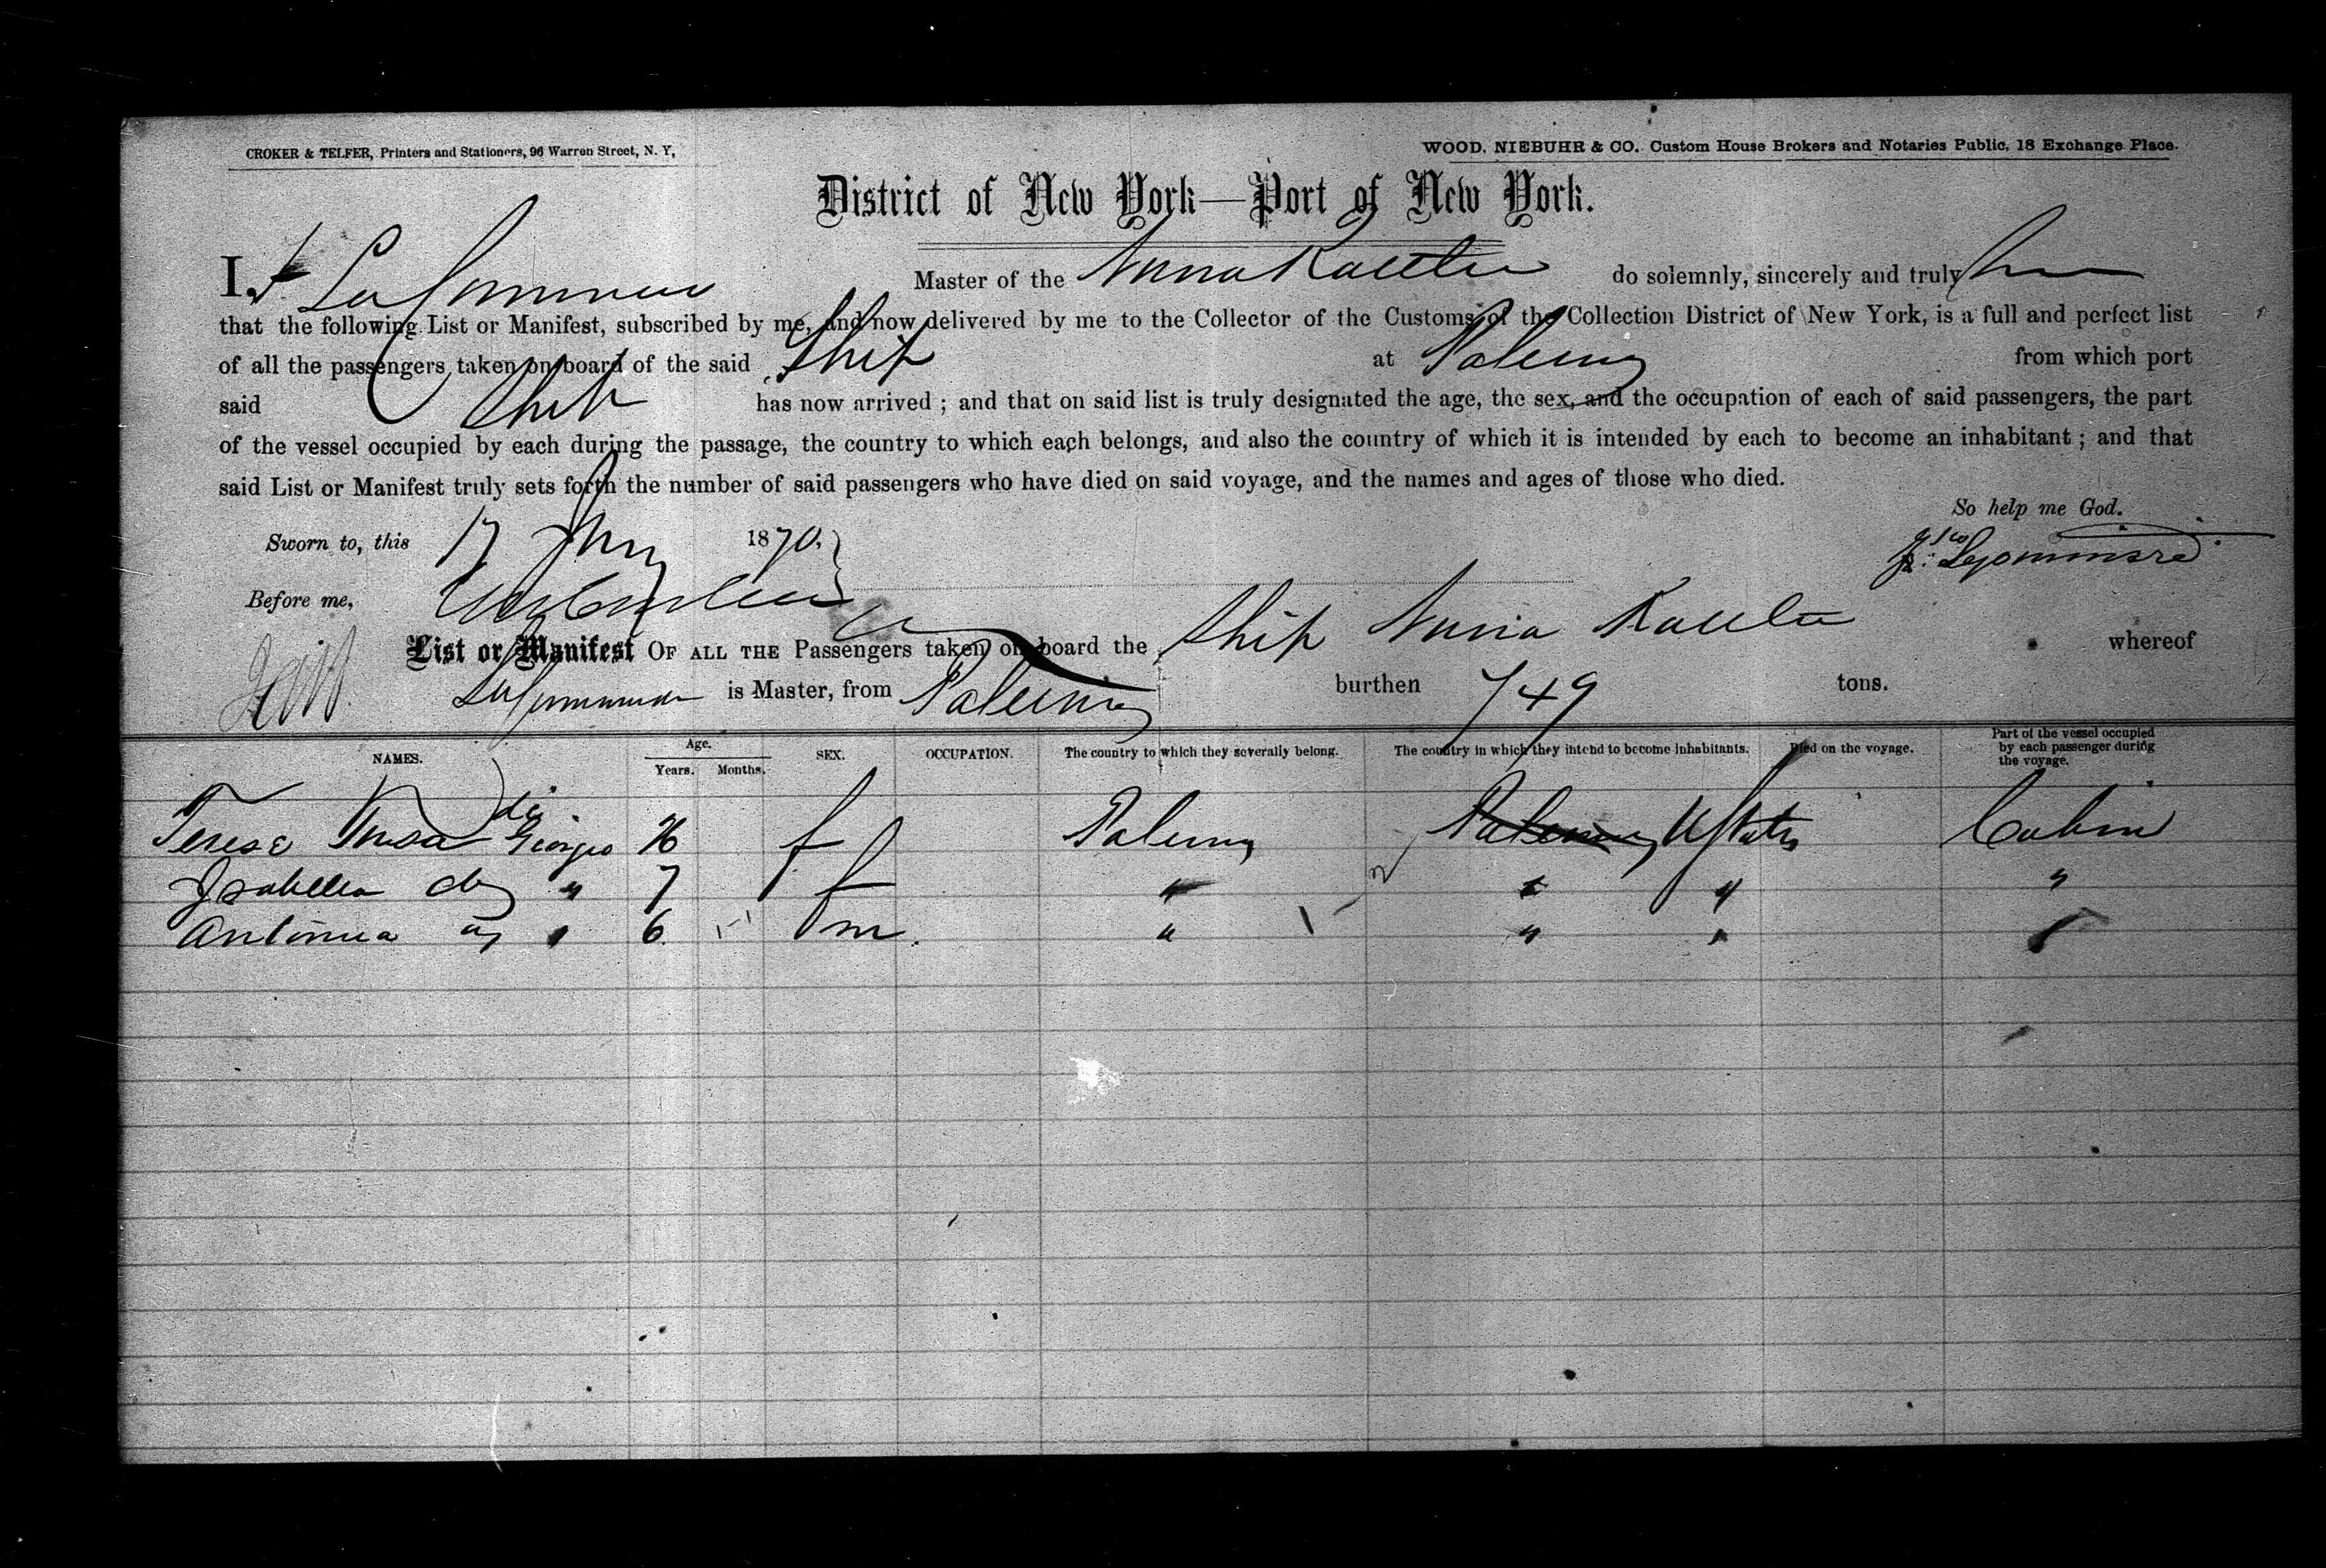 CROKER & TELFER, Printers and Stationers, 96 Warren Street, N. Y,
WOOD, NIEBUHR & CO. Custom House Brokers and Notaries Public, 18 Exchange Place.
District of New York—Port of New York.
I, Master of the do solemnly, sincerely and truly
that the following List or Manifest, subscribed by me, and now delivered by me to the Collector of the Customs of the Collection District of New York, is a full and perfect list
of all the passengers taken on board of the said Ship at Palermo from which port
said Ship has now arrived ; and that on said list is truly designated the age, the sex, and the occupation of each of said passengers, the part
of the vessel occupied by each during the passage, the country to which each belongs, and also the country of which it is intended by each to become an inhabitant ; and that
said List or Manifest truly sets forth the number of said passengers who have died on said voyage, and the names and ages of those who died.
So help me God.
Sworn to, this 17 1870.
Before me,
List or Manifest OF ALL THE Passengers taken on board the Ship whereof
is Master, from Palermo burthen 749 tons.
NAMES. Age. Years. Months. SEX. OCCUPATION. The country to which they severally belong. The country in which they intend to become inhabitants. Died on the voyage. Part of the vessel occupied by each passenger during the voyage.
Terese di Giorgio f Palermo Palermo UStates Cabin
Isabella " 7 f " " " "
6 m " " "